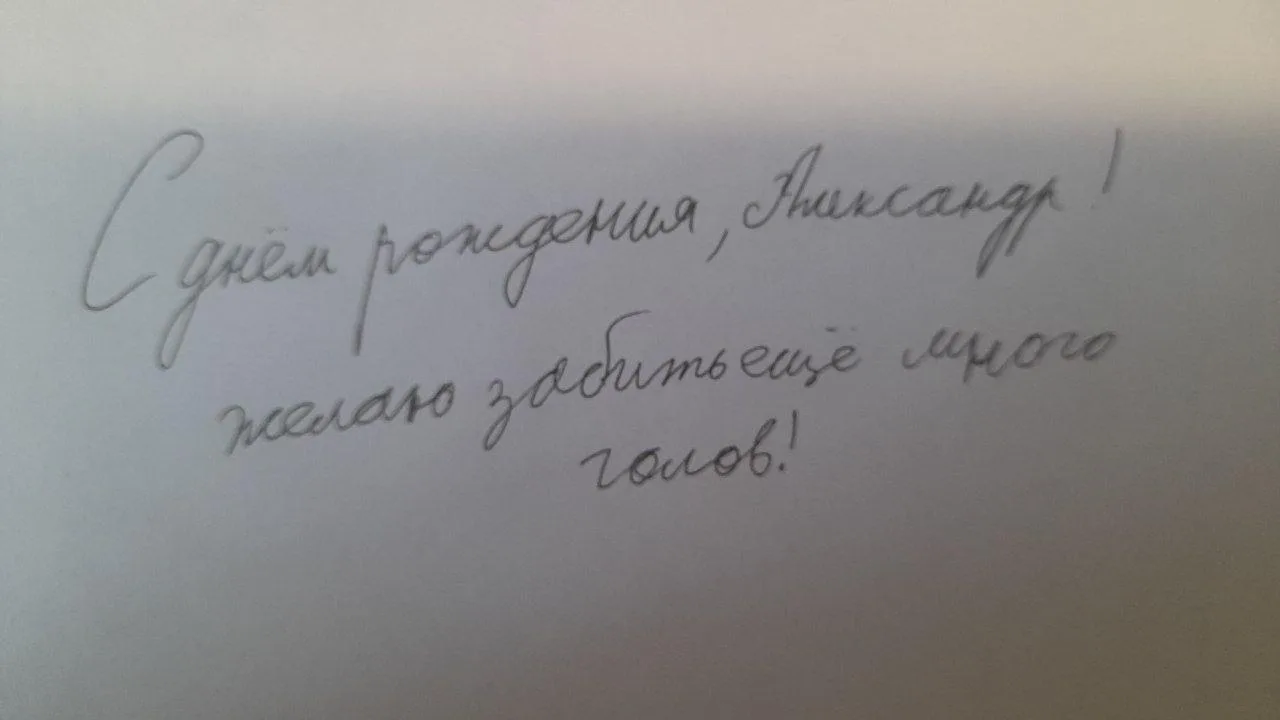 С днём рождения, Александр!
желаю забить ещё много
голов!